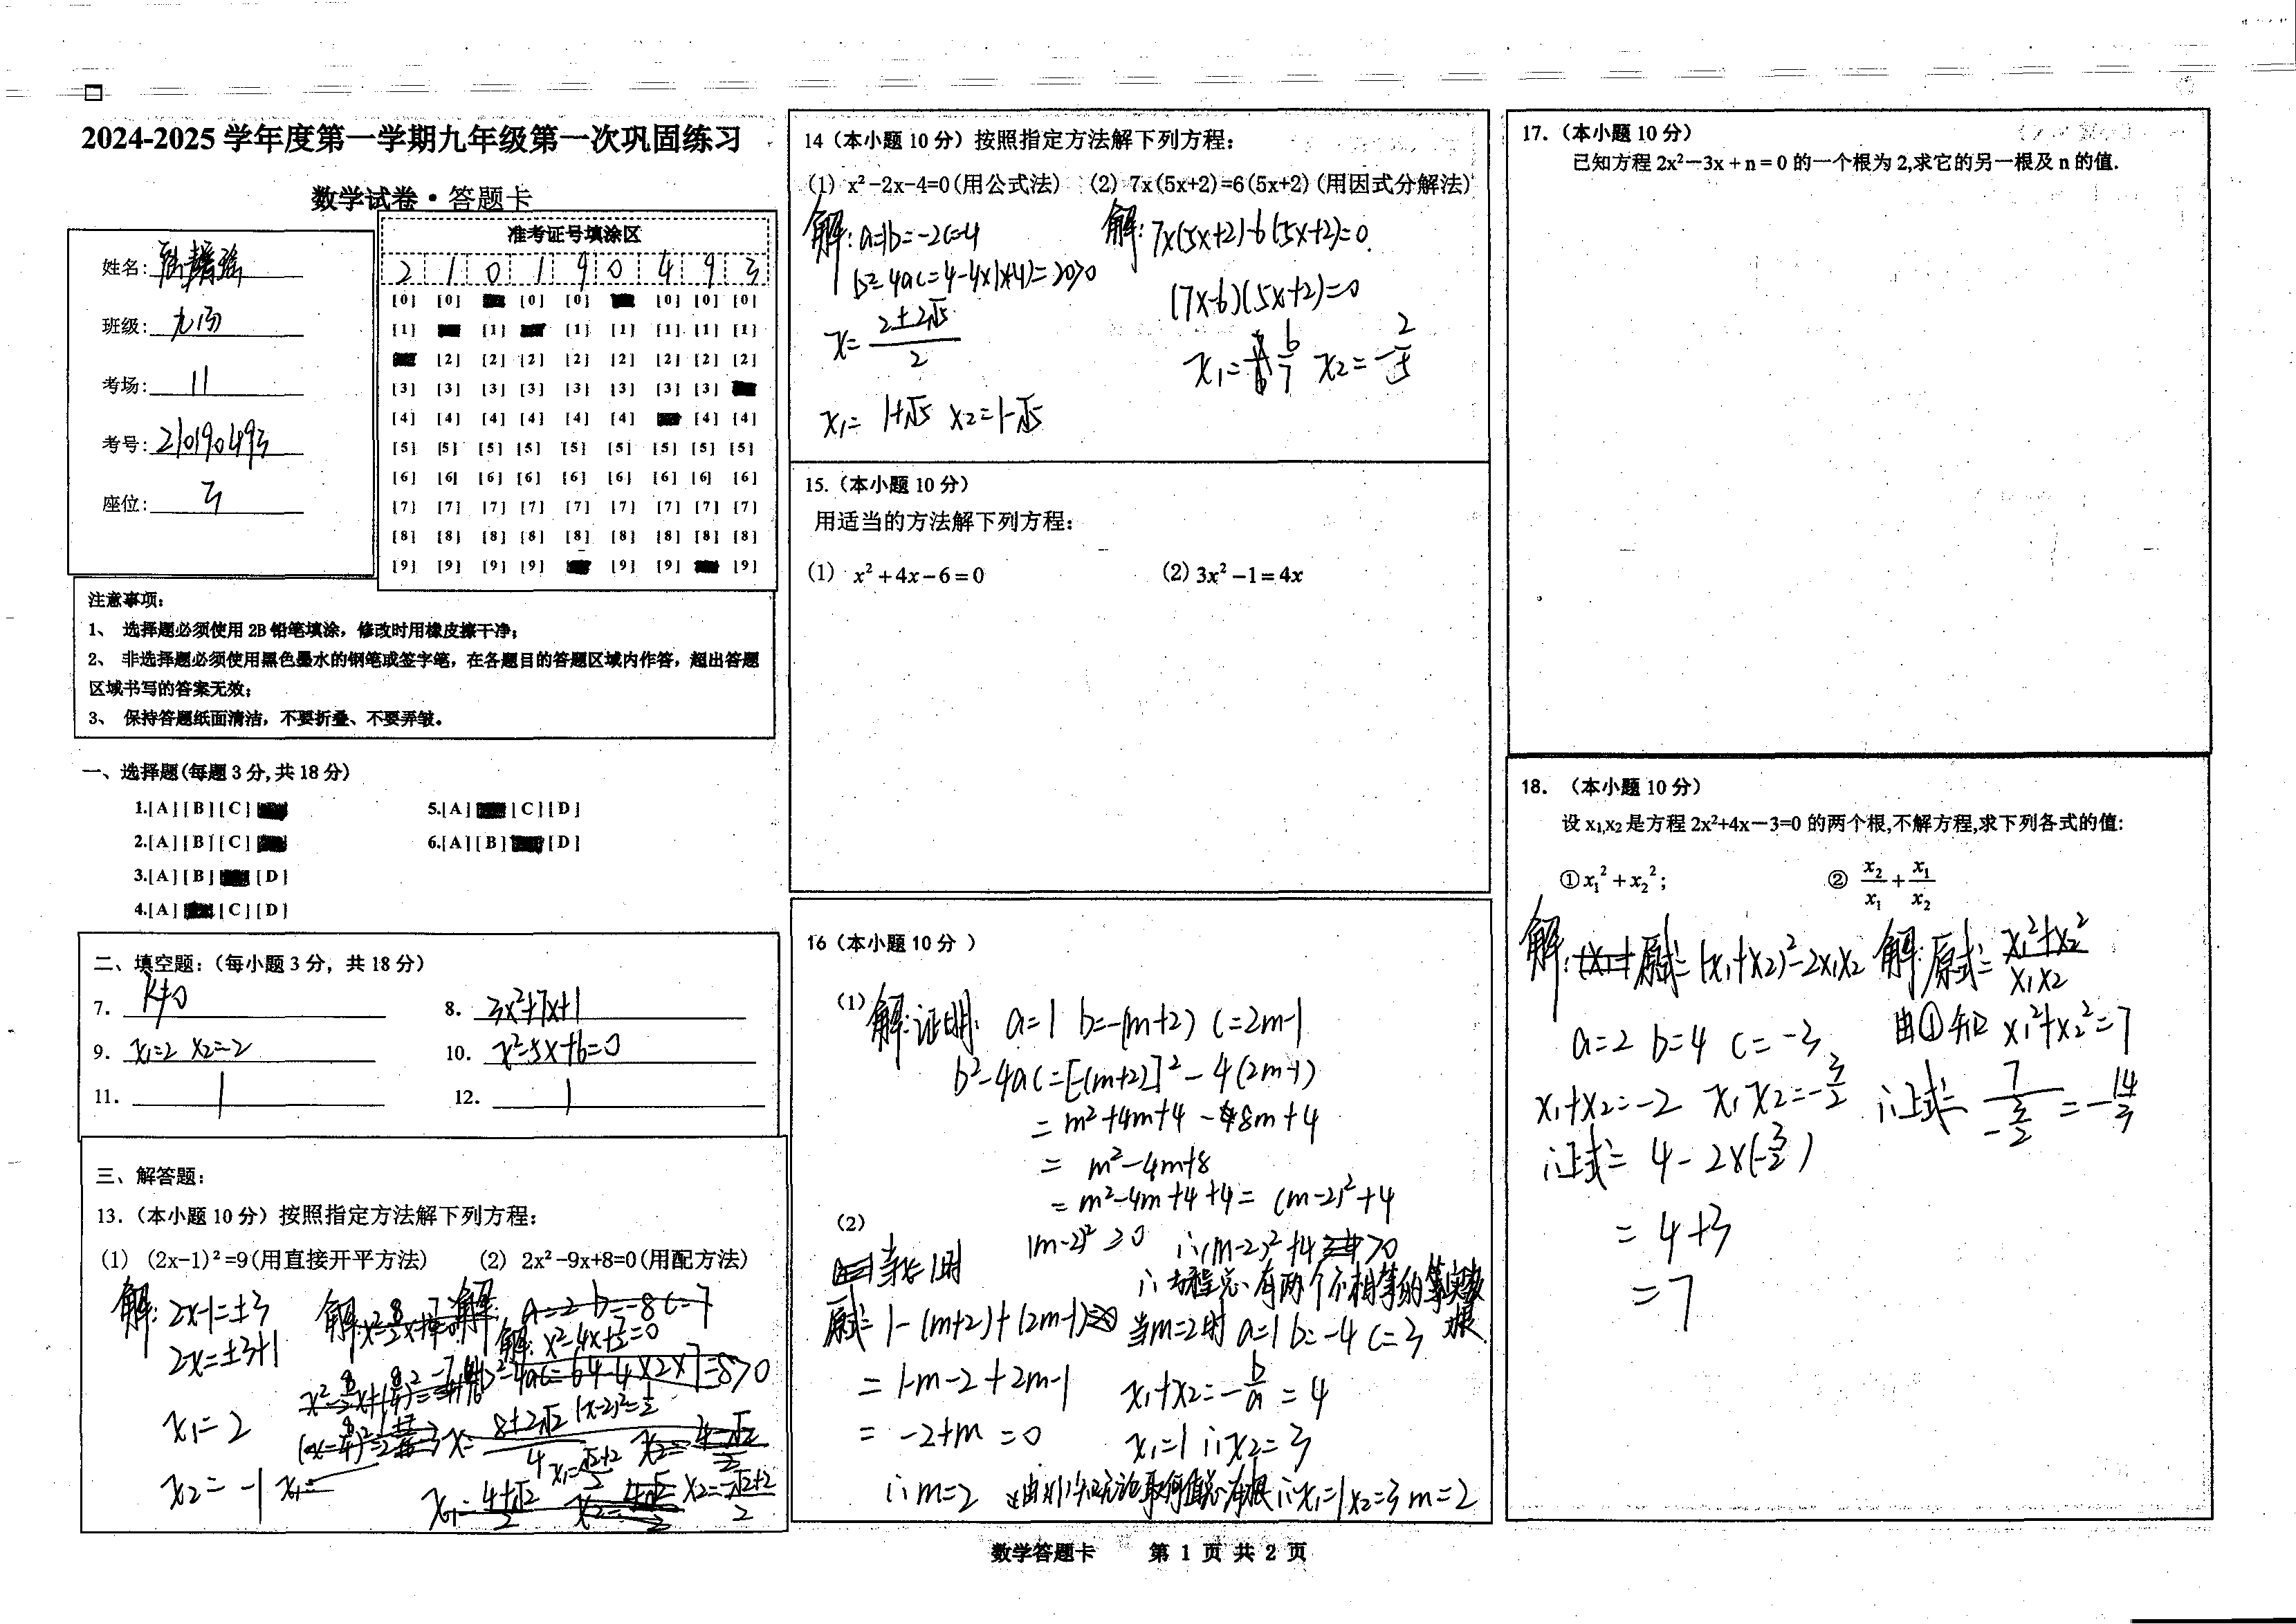 2024-2025 学年度第一学期九年级第一次巩固练习
数学试卷·答题卡
姓名:
班级:
考场: 11
考号: 210190493
座位: 3
准考证号填涂区
2 1 0 1 9 0 4 9 3
[0] [0] [0] [0] [0] [0] [0]
[1] [1] [1] [1] [1] [1] [1]
[2] [2] [2] [2] [2] [2] [2] [2]
[3] [3] [3] [3] [3] [3] [3] [3]
[4] [4] [4] [4] [4] [4] [4] [4]
[5] [5] [5] [5] [5] [5] [5] [5] [5]
[6] [6] [6] [6] [6] [6] [6] [6] [6]
[7] [7] [7] [7] [7] [7] [7] [7] [7]
[8] [8] [8] [8] [8] [8] [8] [8] [8]
[9] [9] [9] [9] [9] [9] [9]
注意事项:
1、 选择题必须使用 2B 铅笔填涂，修改时用橡皮擦干净；
2、 非选择题必须使用黑色墨水的钢笔或签字笔，在各题目的答题区域内作答，超出答题
区域书写的答案无效；
3、 保持答题纸面清洁，不要折叠、不要弄皱。
一、选择题(每题 3 分,共 18 分)
1.[A][B][C]
2.[A][B][C]
3.[A][B] [D]
4.[A] [C][D]
5.[A] [C][D]
6.[A][B] [D]
二、填空题:（每小题 3 分，共 18 分）
7. k≠0
8. 3x²+7x+1
9. x₁=2 x₂=-2
10. x²-5x+6=0
11. 1
12. 1
三、解答题:
13.（本小题 10 分）按照指定方法解下列方程:
(1) (2x-1)²=9(用直接开平方法) (2) 2x²-9x+8=0(用配方法)
解: 2x-1=±3
2x=±3+1
x₁=2
x₂=-1
解: x²-4x+7/2=0
(x-2)²=1/2
x₁=(√2+2)/2
x₂=(-√2+2)/2
14（本小题 10 分）按照指定方法解下列方程:
(1) x²-2x-4=0(用公式法) (2) 7x(5x+2)=6(5x+2)(用因式分解法)
解: a=1 b=-2 c=-4
b²-4ac=4-4×1×(-4)=20>0
x=(2±2√5)/2
x₁=1+√5 x₂=1-√5
解: 7x(5x+2)-6(5x+2)=0
(7x-6)(5x+2)=0
x₁=6/7 x₂=-2/5
15.（本小题 10 分）
用适当的方法解下列方程:
(1) x²+4x-6=0 (2) 3x²-1=4x
16（本小题 10 分 ）
(1) 解:证明: a=1 b=-(m+2) c=2m-1
b²-4ac=[-(m+2)]²-4(2m-1)
=m²+4m+4-8m+4
=m²-4m+8
=m²-4m+4+4=(m-2)²+4
(m-2)²≥0 ∴(m-2)²+4>0
∴方程总有两个不相等的实数根
(2)
当x=1时
原式=1-(m+2)+(2m-1)
=1-m-2+2m-1
=-2+m=0
∴m=2
当m=2时 a=1 b=-4 c=3
x₁+x₂=-b/a=4
x₁=1 ∴x₂=3
∴x₁=1 x₂=3 m=2
17.（本小题 10 分）
已知方程 2x²-3x+n=0 的一个根为 2,求它的另一根及 n 的值.
18.（本小题 10 分）
设 x₁,x₂ 是方程 2x²+4x-3=0 的两个根,不解方程,求下列各式的值:
①x₁²+x₂²; ② x₂/x₁+x₁/x₂
解: 原式=(x₁+x₂)²-2x₁x₂
a=2 b=4 c=-3
x₁+x₂=-2 x₁x₂=-3/2
∴上式=4-2×(-3/2)
=4+3
=7
解:原式=(x₁²+x₂²)/(x₁x₂)
由①知 x₁²+x₂²=7
∴上式=7/(-3/2)=-14/3
数学答题卡 第 1 页 共 2 页